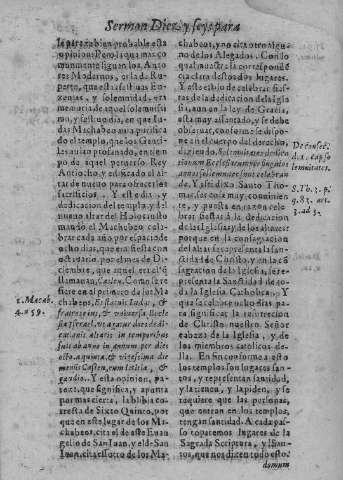 Sermon Diez y seys para
opinion: Pero la que mas co
munmente siguen los Auto
res Modernos, or la de Ru-
perto, que esta fiesta
y solemnidad, era
memoria de aquel
en que Iu
das Machabeo auia purifica
do el templo, que los Genti
les auian profanado, en tiem
po de aquel peruerso Rey
Antiocho, y edificado el al
tar de nueuo para ofrecerles
sacrificios. Y este dia y
dedicacion del templo, y del
nueuo altar del Holocausto
mando el Machabeo cele-
brar cada año por espacio de
ocho dias, que era fiesta con
octauario, por el mes de Di-
ziembre, que aquel
llamauan, Casleu. Como se re
fiere en el primero de los Ma
chabeos, Et statuit Iudas, &
fratres eius, & vniuersa Eccle
sia Israel, vt agatur dies dedi
cationis altaris in temporibus
suis ab anno in annum per dies
octo, à quinta, & vigesima die
mensis Casleu, cum lætitia, &
gaudio. Y esta opinion, pa-
rece, que significa, y apunta
por mas cierta, la biblia cor-
recta de Sixto Quinto, por
que en este lugar de los Ma-
chabeos, cita el de este Euan
gelio de San Iuan, y el de San
Iuan, cita este otro de los Ma
1. Macab.
4. n. 59.
chabeos, y no cita otro algu
no de los Alegados. Con lo
qual muestra la correspōdē
cia clara destos dos lugares.
Y este estilo de celebrar fies-
tas de la dedicacion de la Igle
sia, aun en la ley de Gracia,
esta muy assentado, y se deue
obseruar, conforme se dispo-
ne en el cuerpo del derecho,
diziendo, Solemnitates dedica
tionum Ecclesiarum per singulos
annos solemniter sunt celebran
dæ. Y assi dixo Santo Tho
mas, ser cosa muy conuinien
te, y puesta en razon cele-
brar fiestas à la dedicacion
de las Iglesias y de los altares:
porque en la consagracion
del altar se representa la san-
tidad de Christo, y en la cō
sagracion de la Iglesia, se re-
presenta la Santidad de to-
da la Iglesia Catholica. Y
que se celebre ocho dias pa-
ra significar la resurrecion
de Christo nuestro Señor
cabeza de la Iglesia, y de
los miembros catolicos de-
lla. En fin conforme a esto
los templos son lugares san-
tos, y representan santidad,
y la tienen, y la piden, y se
requiere que las personas,
que entran en los templos,
tengan santidad. A cada pas
so topamos lugares de la
Sagrada Scriptura, y San-
tos, que nos dizen todo esto:
domum
De consec.
d. 1. cap. so
lemnitates.
S. Th. 3. p.
q. 83. art.
3. ad 3.